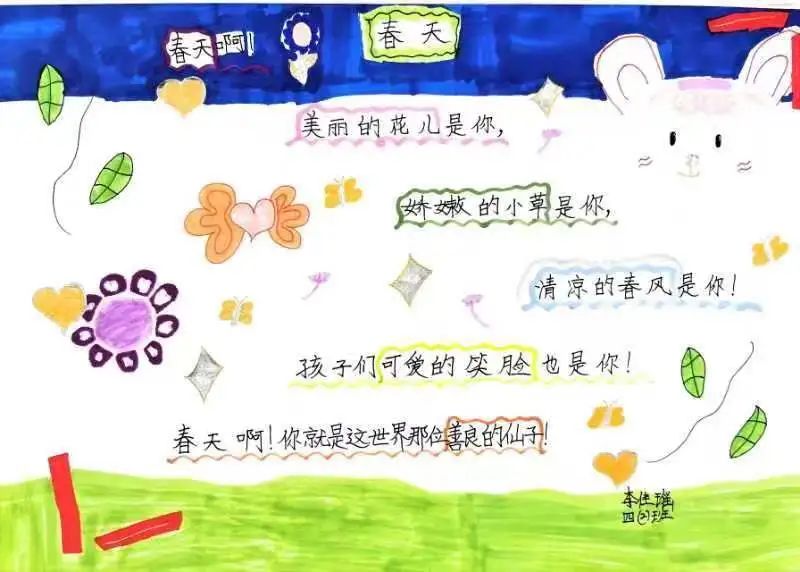 春天
春天啊！
美丽的花儿是你，
娇嫩的小草是你，
清凉的春风是你！
孩子们可爱的笑脸也是你！
春天啊！你就是这世界那位善良的仙子！
李佳瑶
四②班